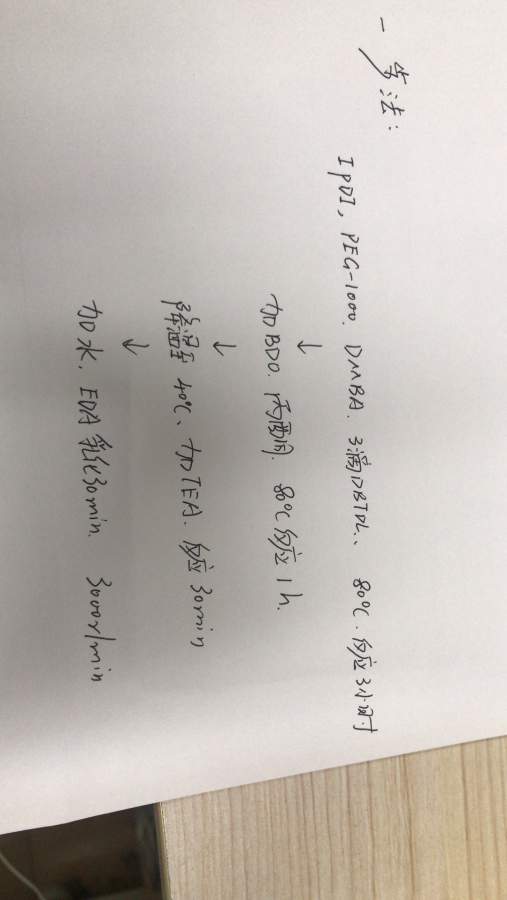 一步法:
IPDI, PEG-1000. DMBA. 3滴DBTDL、 80℃. 反应3小时
↓
加BDO. 丙酮. 80℃反应1h.
↓
降温至 40℃、加TEA. 反应30min
↓
加水. EDA乳化30min. 3000r/min